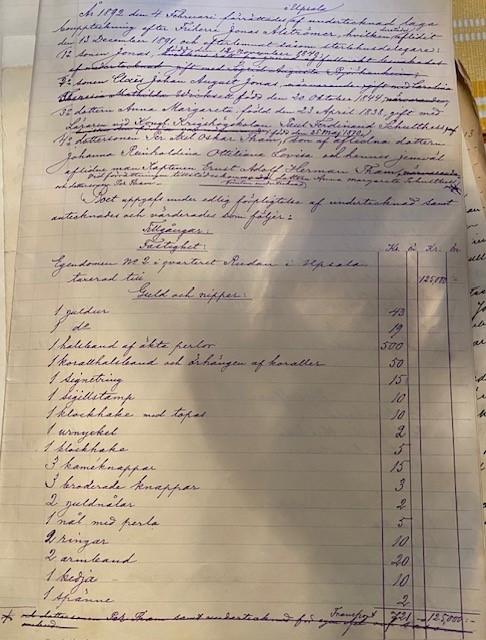 i Upsala
År 1892 den 4 Februari förrättades af undertecknad laga
bouppteckning efter Friherre Jonas Alströmer, hvilken aflidit
den 13 December 1891 och efterlemnat såsom sterbhusdelegare:
1:o sonen Jonas, född den 12 November 1840,
af undertecknad gift med
2:o sonen Claës Johan August Jonas, närvarande, gift med Carolina
Theresia Mathilda född den 20 Oktober 1844
3:o dottern Anna Margareta, född den 23 April 1838 gift med
Läraren vid Kongl. Krigshögskolan Carl Ferdinand Schultthess
född den 25 Maj 1870
4:o dottersonen Per Axel Oskar Tham, son af aflidna dottern
Johanna Reinholdina Ottiliana Lovisa och hennes jemväl
aflidne man Kaptenen Ernst Adolf Herman Tham,
dottern Anna Margareta Schultthess
och dottersonen Per Tham.
Boet uppgafs under edlig förpligtelse af undertecknad samt
antecknades och värderades som följer:
Tillgångar:
Fastighet:
Kr. ö. Kr. ör.
Egendomen No 2 i qvarteret Rudan i Upsala
taxerad till 125,000 -
Guld och nipper:
1 guldur 43
1 do 19
1 halsband af äkta perlor 500
1 korallhalsband och örhängen af koraller 50
1 signetring 15
1 sigillstamp 10
1 klockhake med topas 10
1 urnyckel 2
1 klockhake 5
3 kaméknappar 15
3 broderade knappar 3
2 guldnålar 2
1 nål med perla 5
2 ringar 10
2 armband 20
1 kedja 10
1 spänne 2
Transport 721 - 125,000:-
x dottersonen Per Tham samt undertecknad för egen